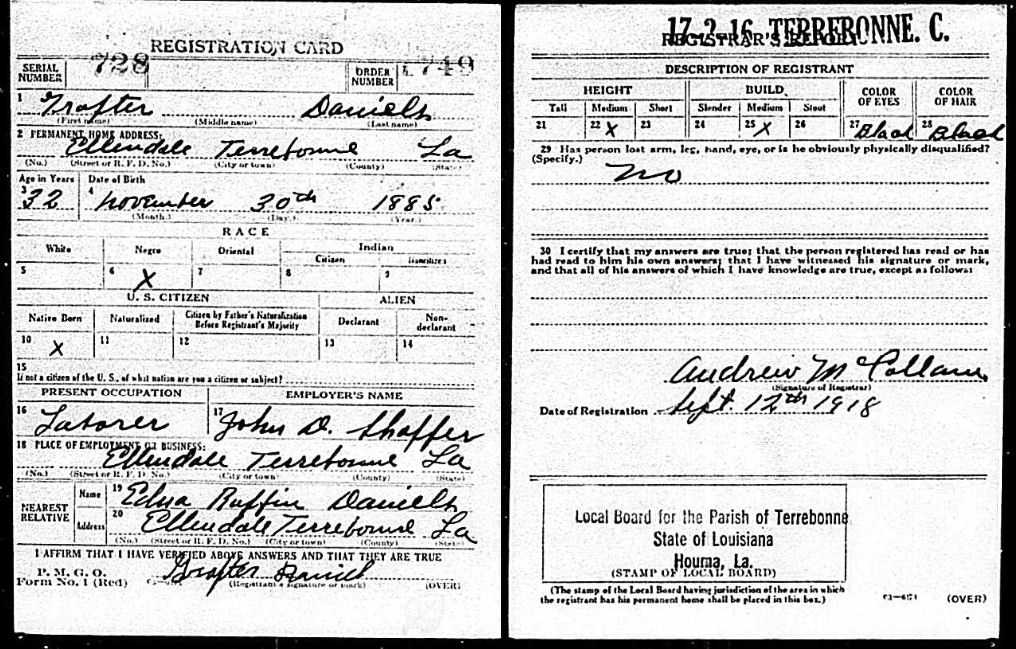 REGISTRATION CARD
SERIAL NUMBER 728
ORDER NUMBER 1749
1 Grafter Daniels
(First name) (Middle name) (Last name)
2 PERMANENT HOME ADDRESS:
Ellendale Terrebonne La
(No.) (Street or R. F. D. No.) (City or town) (County) (State)
Age in Years Date of Birth
3 32 4 November 30th 1885
(Month.) (Day.) (Year.)
RACE
White Negro Oriental Indian
Citizen
5 6 X 7 8 9
U. S. CITIZEN ALIEN
Native Born Naturalized Citizen by Father's Naturalization Before Registrant's Majority Declarant Non-declarant
10 X 11 12 13 14
15
If not a citizen of the U. S., of what nation are you a citizen or subject?
PRESENT OCCUPATION EMPLOYER'S NAME
16 Laborer 17 John D. Shaffer
18 PLACE OF EMPLOYMENT OR BUSINESS:
Ellendale Terrebonne La
(No.) (Street or R. F. D. No.) (City or town) (County) (State)
NEAREST RELATIVE Name 19 Edna Ruffin Daniels
Address 20 Ellendale Terrebonne La
(No.) (Street or R. F. D. No.) (City or town) (County) (State)
I AFFIRM THAT I HAVE VERIFIED ABOVE ANSWERS AND THAT THEY ARE TRUE
P. M. G. O.
Form No. 1 (Red) Grafter Daniels
(Registrant's signature or mark) (OVER)
17-2-16 TERREBONNE. C.
REGISTRAR'S REPORT
DESCRIPTION OF REGISTRANT
HEIGHT BUILD COLOR OF EYES COLOR OF HAIR
Tall Medium Short Slender Medium Stout
21 22 X 23 24 25 X 26 27 Black 28 Black
29 Has person lost arm, leg, hand, eye, or is he obviously physically disqualified?
(Specify.)
No
30 I certify that my answers are true; that the person registered has read or has
had read to him his own answers; that I have witnessed his signature or mark,
and that all of his answers of which I have knowledge are true, except as follows:
Andrew McCollam
(Signature of Registrar)
Date of Registration Sept. 12th 1918
Local Board for the Parish of Terrebonne
State of Louisiana
Houma, La.
(STAMP OF LOCAL BOARD)
(The stamp of the Local Board having jurisdiction of the area in which
the registrant has his permanent home shall be placed in this box.)
(OVER)